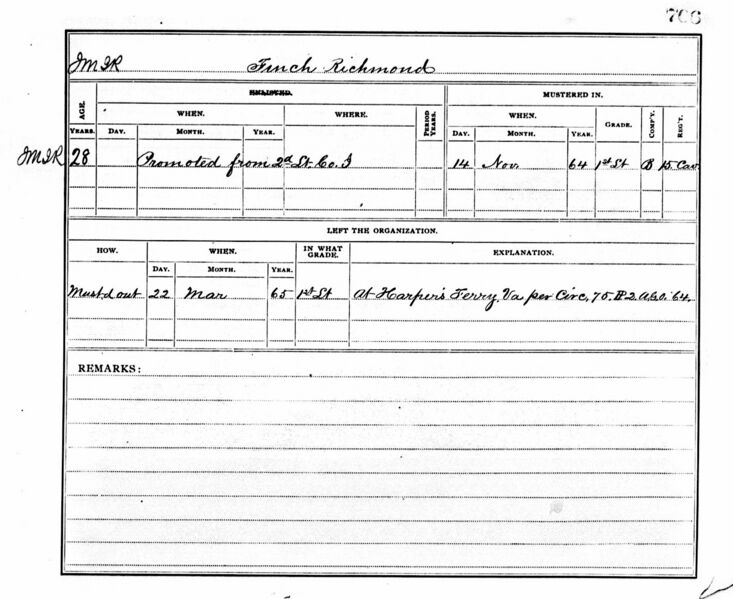 706
JMIR Finch Richmond
AGE. ENLISTED. MUSTERED IN.
WHEN. WHERE. PERIOD YEARS. WHEN. GRADE. COMP'Y. REG'T.
YEARS. DAY. MONTH. YEAR. DAY. MONTH. YEAR.
JMIR 28 Promoted from 2d Lt. Co. I 14 Nov. 64 1st Lt B 15 Cav.
LEFT THE ORGANIZATION.
HOW. WHEN. IN WHAT GRADE. EXPLANATION.
DAY. MONTH. YEAR.
Must'd out 22 Mar 65 1st Lt At Harper's Ferry, Va per Circ, 75. P 2. A.G.O. '64.
REMARKS: